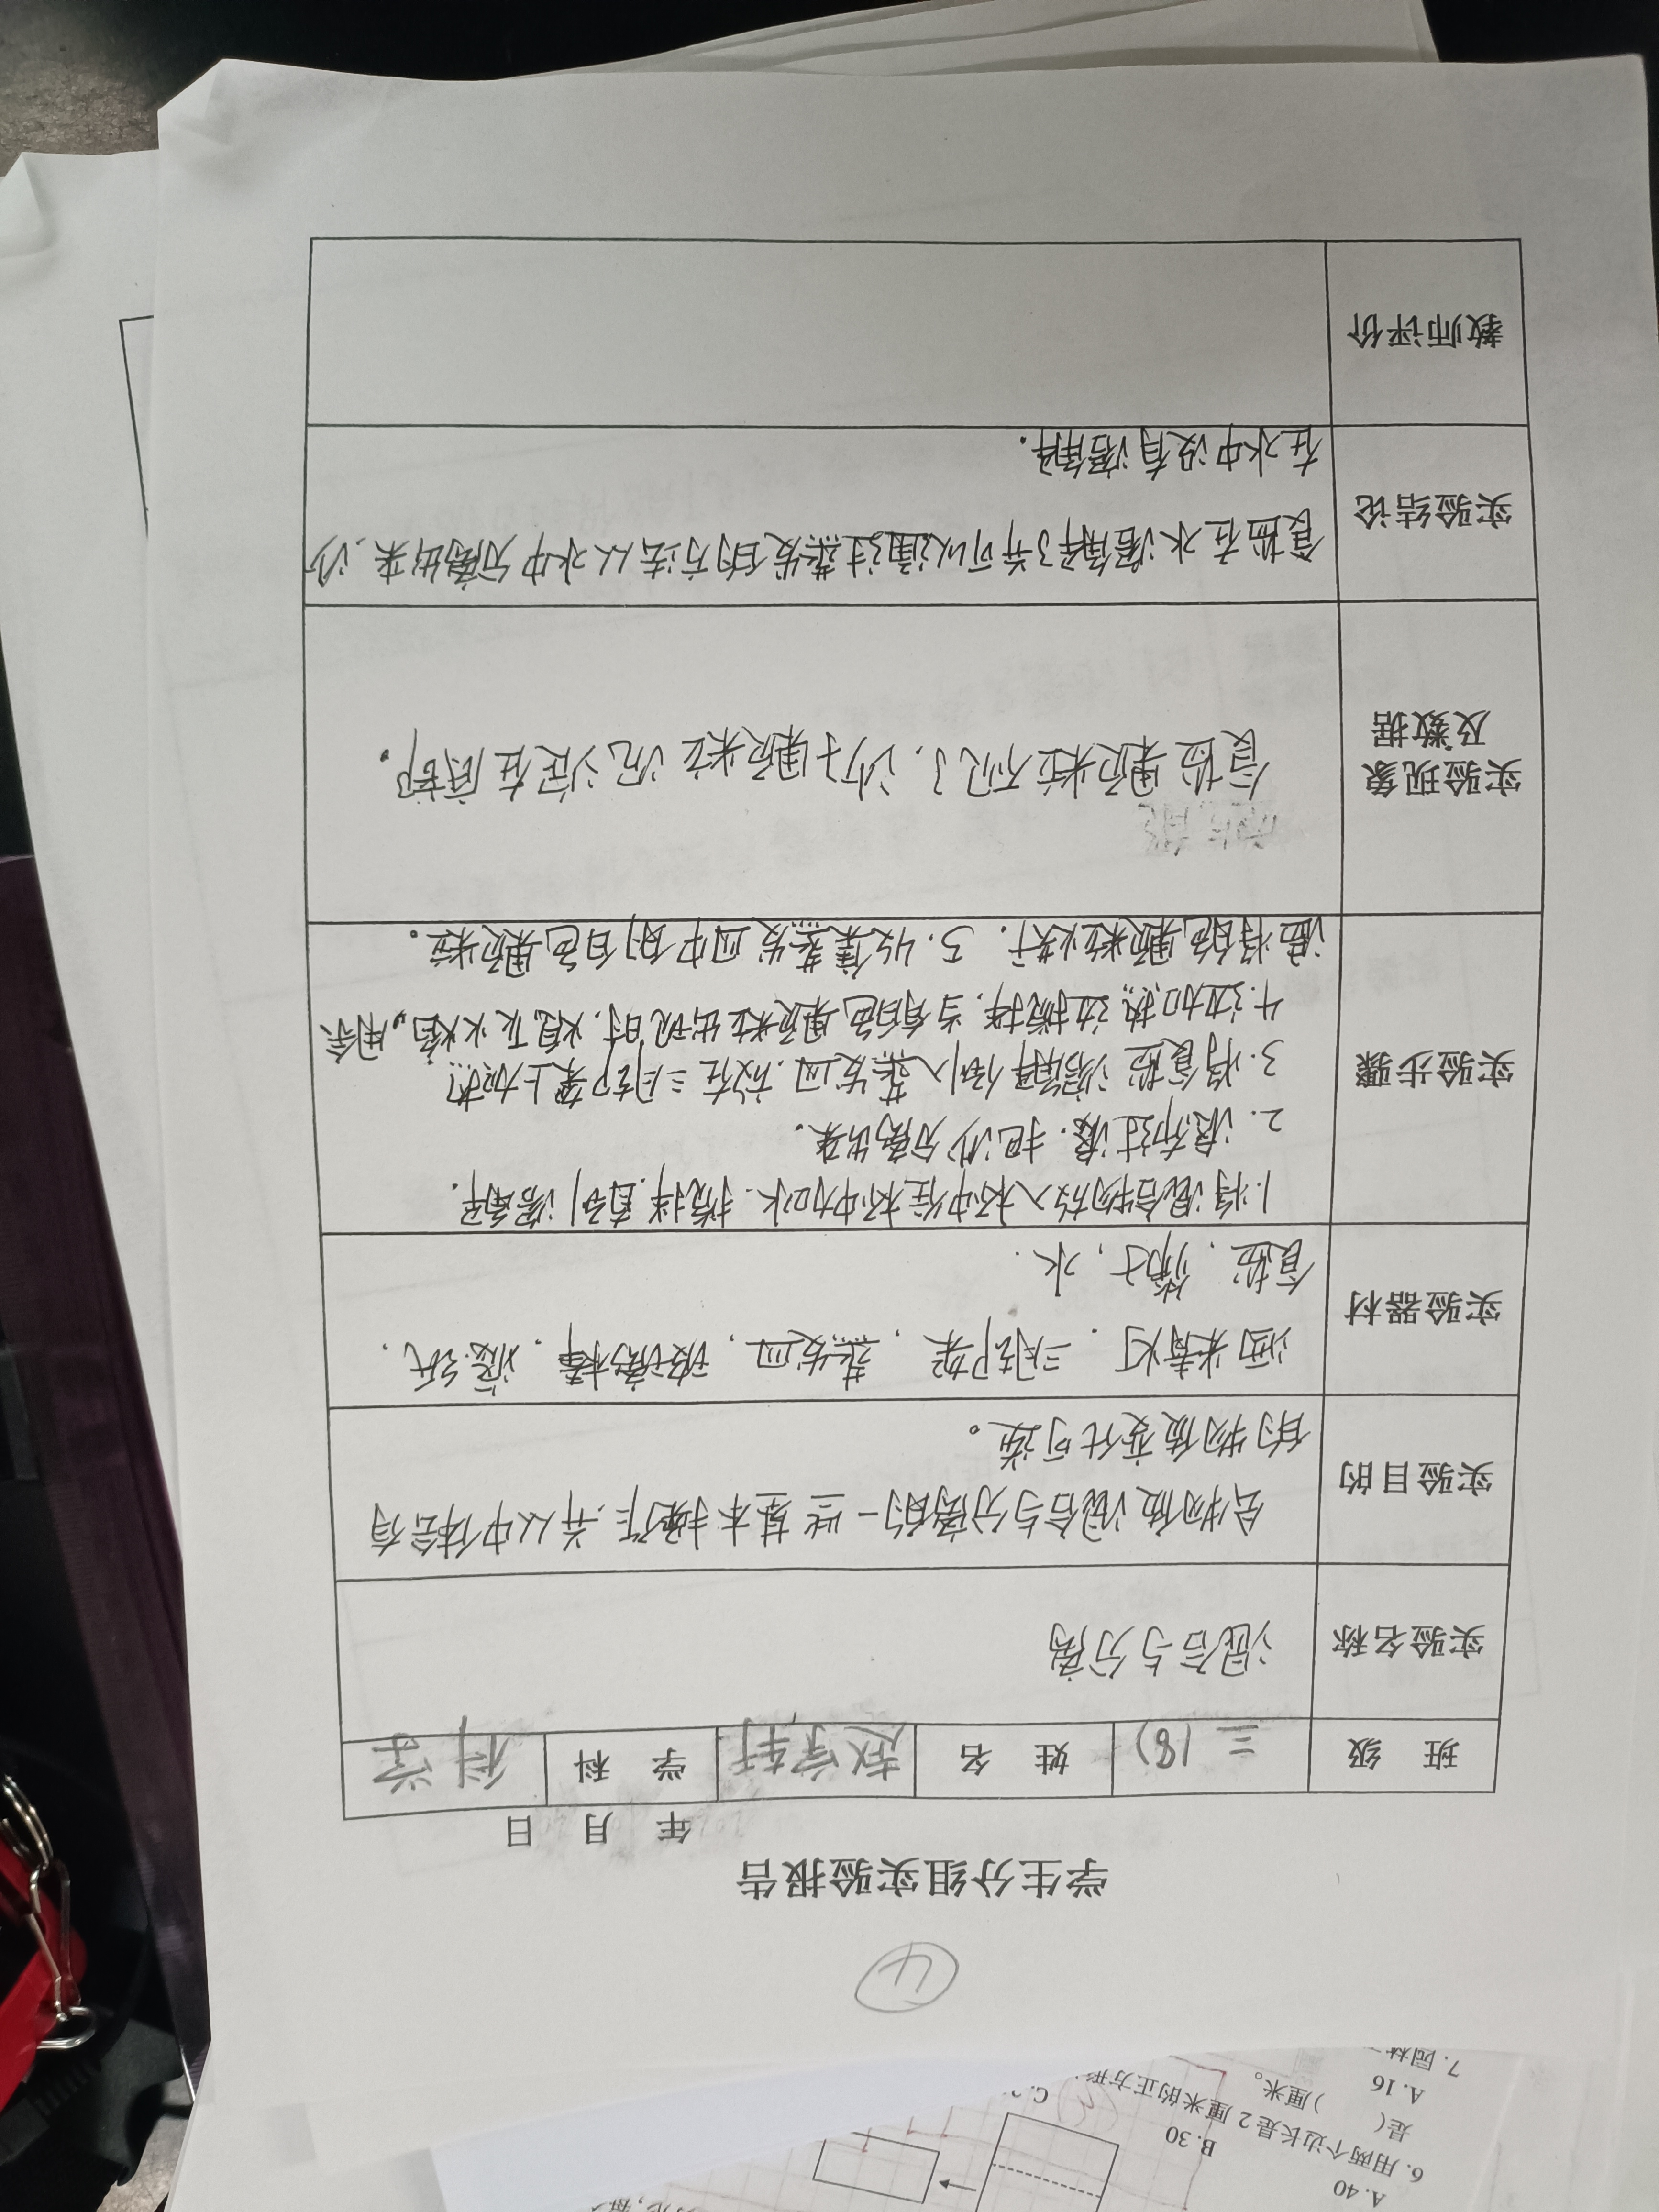 ④
学生分组实验报告
年 月 日
班 级 三(8) 姓 名 赵宇轩 学 科 科学
实验名称 混合与分离
实验目的 会物质混合与分离的一些基本操作.并从中体会有
的物质变化可逆。
实验器材 酒米青灯.三脚架,蒸发皿,玻离棒.滤纸.
食盐.沙土,水.
实验步骤 1.将混合物放入杯中往杯中加水.搅拌.直到溶解.
2.滚布过滤.把沙分离出来.
3.将食盐溶解倒入蒸发皿.放在三脚架上加热.
4.边加热,边搅拌.当有白色果页粒出现时.熄灭火焰,用余
温将白色果页粒火共干. 5.收集蒸发皿中的白色果页粒.
实验现象
及数据 食盐果页粒不见了,沙土果页粒沉淀在底部.
实验结论 食盐在水溶解了并可以通过蒸发的方法从水中分离出来.沙
在水中没有溶解.
教师评价
A.40 B.30
6.用两个边长是2厘米的正方形
是( )厘米。
A.16
7.园林